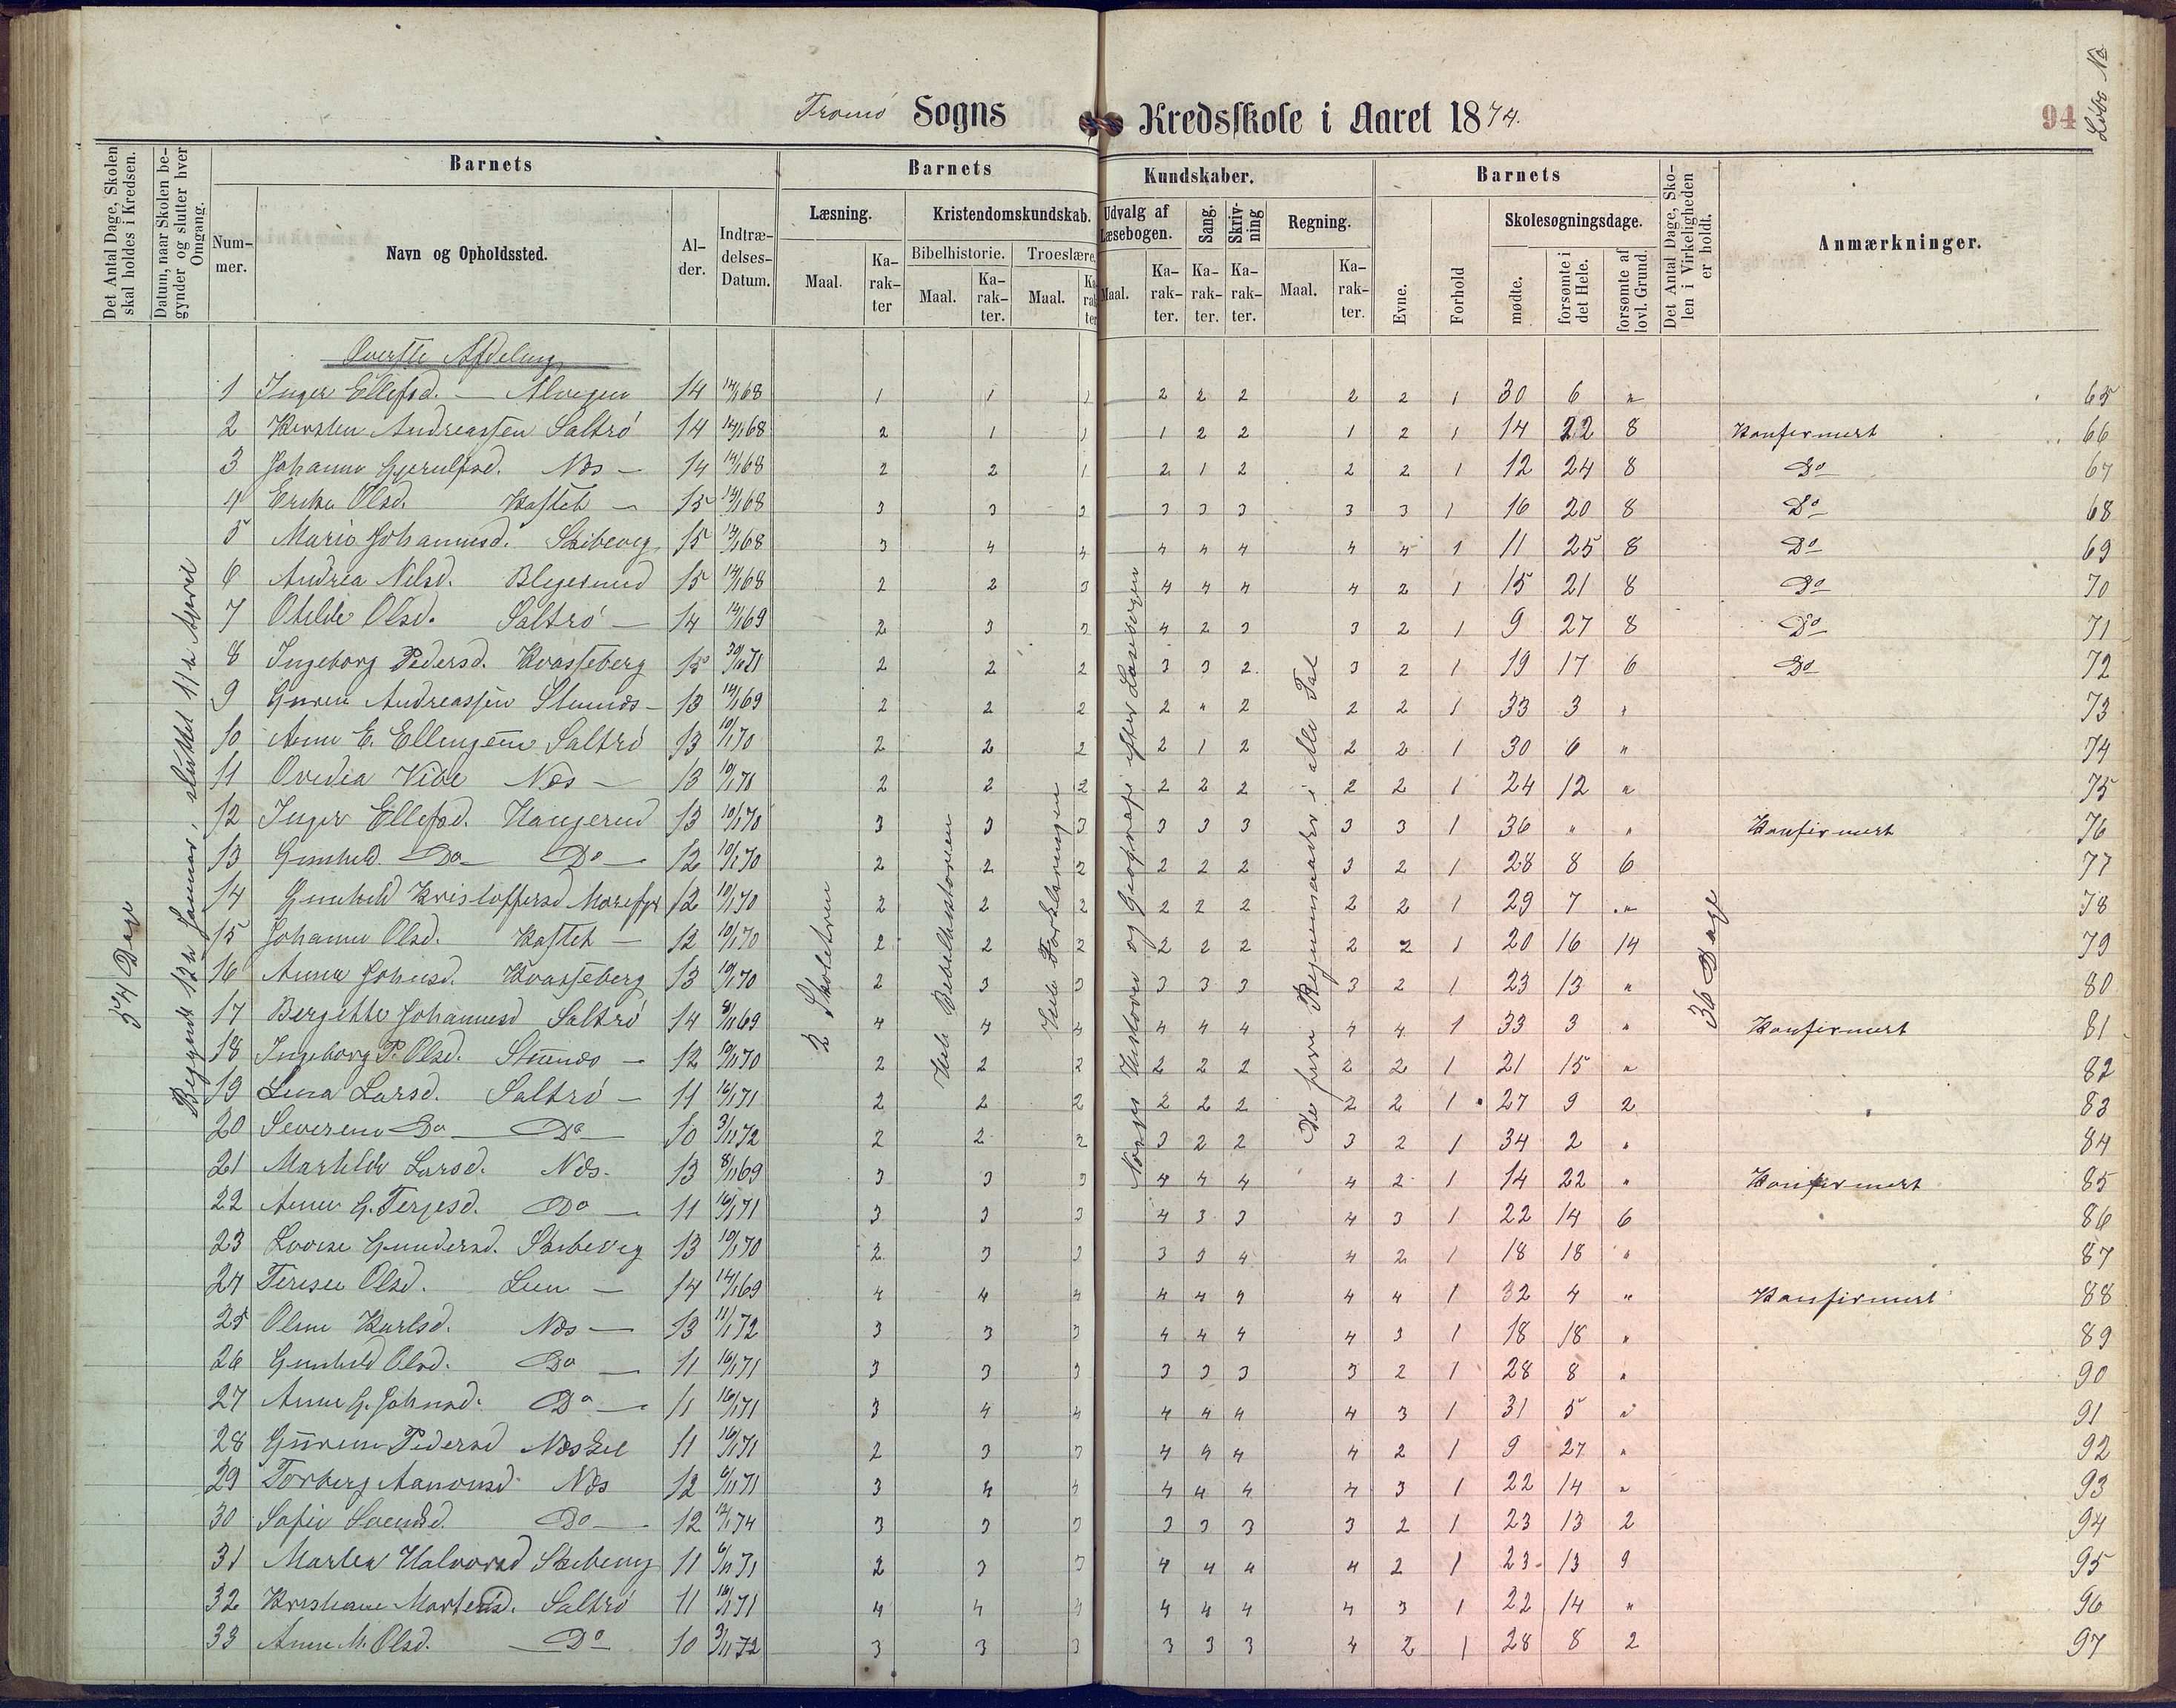 Tromø Sogns Kredsskole i Aaret 1874.
94
Løbe No
Det Antal Dage, Skolen skal holdes i Kredsen.
Datum, naar Skolen begynder og slutter hver Omgang.
Barnets
Nummer.
Navn og Opholdssted.
Alder.
Indtrædelses-Datum.
Barnets Kundskaber.
Læsning.
Maal.
Karakter
Kristendomskundskab.
Bibelhistorie.
Maal.
Karakter.
Troeslære.
Maal.
Karakter
Udvalg af Læsebogen.
Maal.
Karakter.
Sang.
Karakter.
Skrivning
Karakter.
Regning.
Maal.
Karakter.
Barnets
Evne.
Forhold
Skolesøgningsdage.
mødte.
forsømte i det Hele.
forsømte af lovl. Grund.
Det Antal Dage, Skolen i Virkeligheden er holdt.
Anmærkninger.
54 Dage
Begyndt 12te Januar, sluttet 11te April
2 Skoletrin
Hele Bibelhistorien
Hele Forklaringen
Norges Historie og Geografi efter Læsebogen
De fire Regningsarter i alle Tal
36 Dage
Øverste Afdeling
1 Inger Ellefsd. — 14 14/1 68 1 1 1 2 2 2 2 2 1 30 6 " 65
2 Kirsten Andreassen Saltrø 14 14/1 68 2 1 1 1 2 2 1 2 1 14 22 8 Konfirmert 66
3 Johanne Gjerulfsd. Næs — 14 14/1 68 2 2 1 2 1 2 2 2 1 12 24 8 Do 67
4 Erika Olsd. Kastet — 15 14/1 68 3 3 3 3 3 3 3 3 1 16 20 8 Do 68
5 Marie Johannesd. Skibevig 15 14/1 68 3 4 4 4 4 4 4 4 1 11 25 8 Do 69
6 Andrea Nilsd. 15 14/1 68 2 2 3 4 4 4 4 2 1 15 21 8 Do 70
7 Otilde Olsd. Saltrø — 14 14/1 69 2 3 3 4 2 3 3 2 1 9 27 8 Do 71
8 Ingeborg Pedersd. Kvasseberg 15 71 2 2 2 3 3 2 3 2 1 19 17 6 Do 72
9 Andreassen 13 14/1 69 2 2 2 2 " 2 2 2 1 33 3 " 73
10 Anne E. Saltrø 13 10/1 70 2 2 2 2 1 2 2 2 1 30 6 " 74
11 Ovedia Vibe Næs — 13 10/1 70 2 2 2 2 2 2 2 2 1 24 12 " 75
12 Inger Ellefsd. Haugerud 13 10/1 70 3 3 3 3 3 3 3 3 1 36 " " Konfirmert 76
13 Gunhild Do Do 12 10/1 70 2 2 2 2 2 2 3 2 1 28 8 6 77
14 Gunhild Kristoffersd 12 10/1 70 2 2 2 2 2 2 2 2 1 29 7 " 78
15 Johanne Olsd. Kastet — 12 10/1 70 2 2 2 2 2 2 2 2 1 20 16 14 79
16 Anna Johnsd. Kvasseberg 13 10/1 70 2 3 3 3 3 3 3 2 1 23 13 " 80
17 Bergitte Johannesd Saltrø 14 8/11 69 4 4 4 4 4 4 4 4 1 33 3 " Konfirmert 81
18 Ingeborg P. Olsd. 12 10/1 70 2 2 2 2 2 2 2 2 1 21 15 " 82
19 Lina Larsd. Saltrø — 11 16/1 71 2 2 2 2 2 2 2 2 1 27 9 2 83
20 Severine Do Do 10 3/11 72 2 2 2 3 2 2 3 2 1 34 2 " 84
21 Larsd. Næs 13 8/11 69 3 3 3 4 4 4 4 2 1 14 22 " Konfirmert 85
22 Anne G. Terjesd. Do 11 16/1 71 3 3 3 4 3 3 4 3 1 22 14 6 86
23 Lovise Gundersd. Skibevig 13 10/1 70 2 3 3 3 3 4 4 2 1 18 18 " 87
24 Terese Olsd. — 14 14/1 69 4 4 4 4 4 4 4 4 1 32 4 " Konfirmert 88
25 Karlsd. Næs — 13 11/1 72 3 3 3 4 4 4 4 3 1 18 18 " 89
26 Gunhild Olsd. Do 11 16/1 71 3 3 3 3 3 3 3 2 1 28 8 " 90
27 Anne G. Johnsd. Do 11 16/1 71 3 4 4 4 4 4 4 3 1 31 5 " 91
28 Pedersd 11 16/1 71 2 3 3 4 4 4 4 2 1 9 27 " 92
29 Torberg Aanonsd Næs 12 6/11 71 3 4 4 4 4 4 4 3 1 22 14 " 93
30 Sofie Svendsd. Do 12 12/1 74 3 3 3 3 3 3 3 2 1 23 13 2 94
31 Halvorsd 11 6/11 71 2 3 3 4 4 4 4 2 1 23 13 9 95
32 Kristiane Mortensd. Saltrø 11 16/1 71 4 4 4 4 4 4 4 3 1 22 14 " 96
33 Anne M. Olsd. Do 10 3/11 72 3 3 3 3 3 3 4 2 1 28 8 2 97